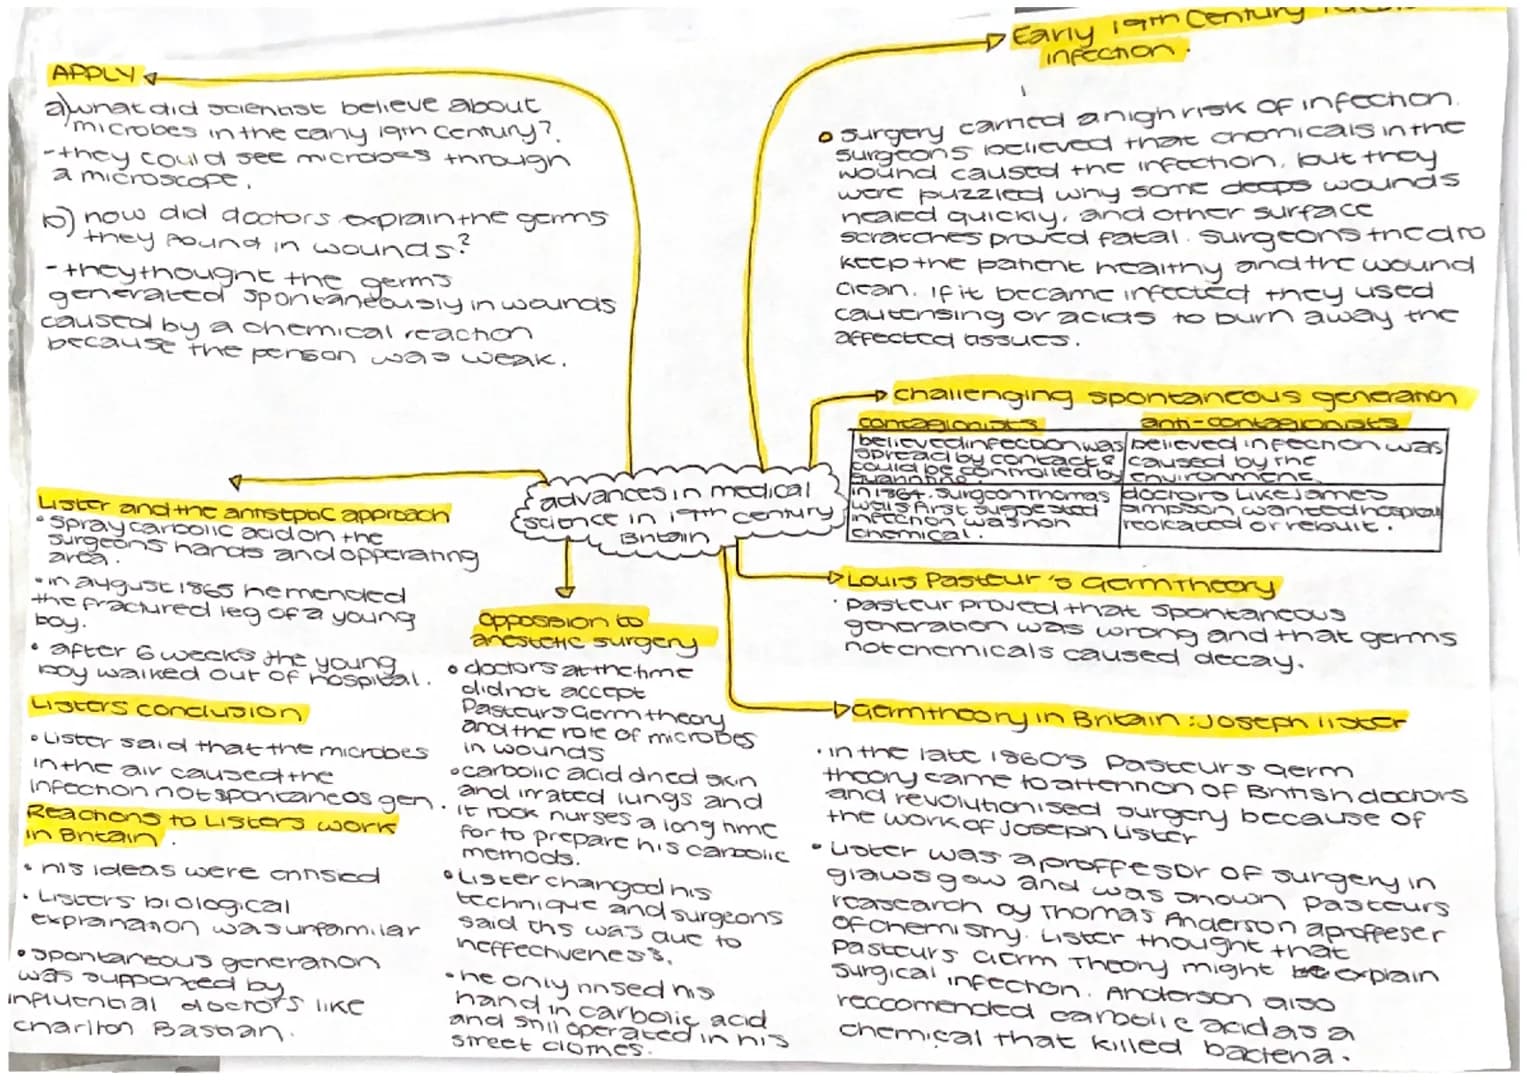 APPLY
a) what did scientist believe about
microbes in the early 19th century?
- they could see microbes through
a microscope.
b) how did doctors explain the germs
they found in wounds?
- they thought the germs
generated spontaneously in wounds
caused by a chemical reaction
because the person was weak.
Early 19th Century
infection.
surgery carried a high risk of infection.
surgeons believed that chemicals in the
wound caused the infection, but they
were puzzled why some deeps wounds
healed quickly, and other surface
scratches proved fatal. Surgeons tried to
keep the patient healthy and the wound
clean. If it became infected they used
cauterising or acids to burn away the
affected tissues.
challenging spontaneous generation
contagionists
believed infection was
spread by contact &
could be controlled by
quarintine.
anti-contagionists
believed infection was
caused by the
environment.
in 1864. surgeon Thomas
wells first suggested
infection was non
chemical.
doctors like James
simpson wanted hospital
reolcated or rebuilt.
advances in medical
science in 19th century
Britain
Louis Pasteur's Germ Theory
• Pasteur proved that spontaneous
generation was wrong and that germs
not chemicals caused decay.
Germ theory in Britain: Joseph lister
• in the late 1860's Pasteurs Germ
theory came to attention of British doctors
and revolutionised surgery because of
the work of Joseph Lister
• Lister was a proffesor of surgery in
glawsgow and was shown Pasteurs
reasearch by Thomas Anderson a proffeser
of chemistry. Lister thought that
Pasteurs Germ Theory might explain
surgical infection. Anderson also
reccomended carbolic acid as a
chemical that killed bacteria.
Lister and the antisteptic approach
• Spray carbolic acid on the
surgeons hands and opperating
area.
• in august 1865 he mended
the fractured leg of a young
boy.
• after 6 weeks the young
boy walked out of hospital.
Listers conclusion
• Lister said that the microbes
in the air caused the
infection not spontaneos gen.
Reactions to Listers work
in Britain.
• his ideas were critisied
• Listers biological
explanation was unfamiliar
• spontaneous generation
was supported by
influential doctors like
charlton Bastian.
oppossion to
anestetic surgery
• doctors at the time
did not accept
Pasteurs Germ theory
and the role of microbes
in wounds
• carbolic acid dried skin
and irrated lungs and
it took nurses a long time
for to prepare his carbolic
methods.
• Lister changed his
technique and surgeons
said this was due to
ineffectiveness.
• he only rinsed his
hand in carbolic acid
and still operated in his
street clothes.